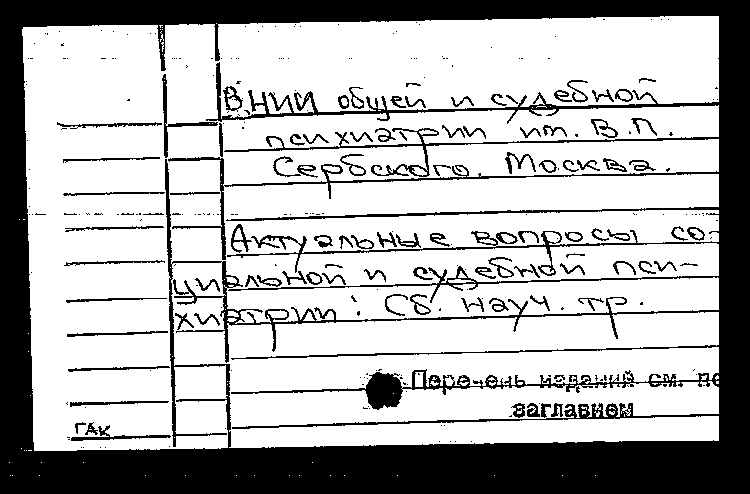 ВНИИ общей и судебной
психиатрии им. В.П.
Сербского. Москва.
Актуальные вопросы со-
циальной и судебной пси-
хиатрии: Сб. науч. тр.
Перечень изданий см.
заглавием
ГАК